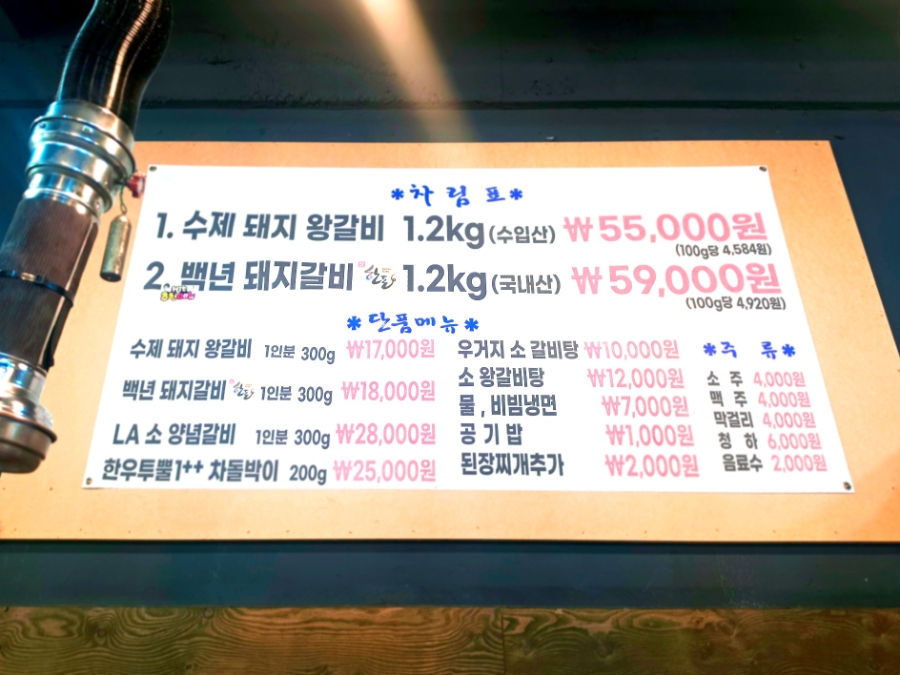 *차림표*
1. 수제 돼지 왕갈비 1.2kg (수입산) ₩55,000원
(100g당 4,584원)
2. 백년 돼지갈비 한돈 1.2kg (국내산) ₩59,000원
(100g당 4,920원)
*단품메뉴*
수제 돼지 왕갈비 1인분 300g ₩17,000원
백년 돼지갈비 한돈 1인분 300g ₩18,000원
LA 소 양념갈비 1인분 300g ₩28,000원
한우투뿔1++ 차돌박이 200g ₩25,000원
우거지 소 갈비탕 ₩10,000원
소 왕갈비탕 ₩12,000원
물 , 비빔냉면 ₩7,000원
공 기 밥 ₩1,000원
된장찌개추가 ₩2,000원
*주 류*
소 주 4,000원
맥 주 4,000원
막걸리 4,000원
청 하 6,000원
음료수 2,000원